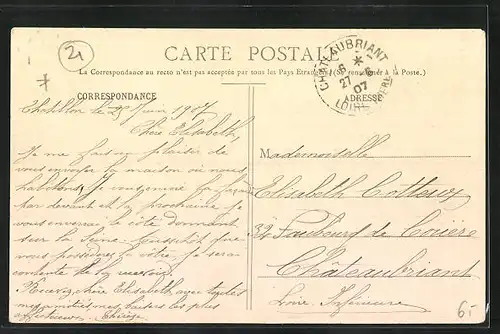 21
CARTE POSTALE
La Correspondance au recto n'est pas acceptée par tous les Pays Etrangers (Se renseigner à la Poste.)
CHATEAUBRIANT
6 *
27 -6
07
LOIRE
CORRESPONDANCE
ADRESSE
Châtillon le 25 Juin 1907
Chère Elisabeth,
Je me fais un plaisir de
vous envoyer la maison où nous
habitons. Je la façade
par devant et la prochaine je
vous enverrai le côté donnant
sur la Seine. Aussitôt que
vous possèderez la vôtre je serai
contente de la recevoir.
Recevez chère Elisabeth avec toutes
mes amitiés mes baisers les plus
affectueux. Thérèse
Mademoiselle
Elisabeth Cotteux
32 Faubourg de Couëre
Châteaubriant
Loire Inférieure
6.-